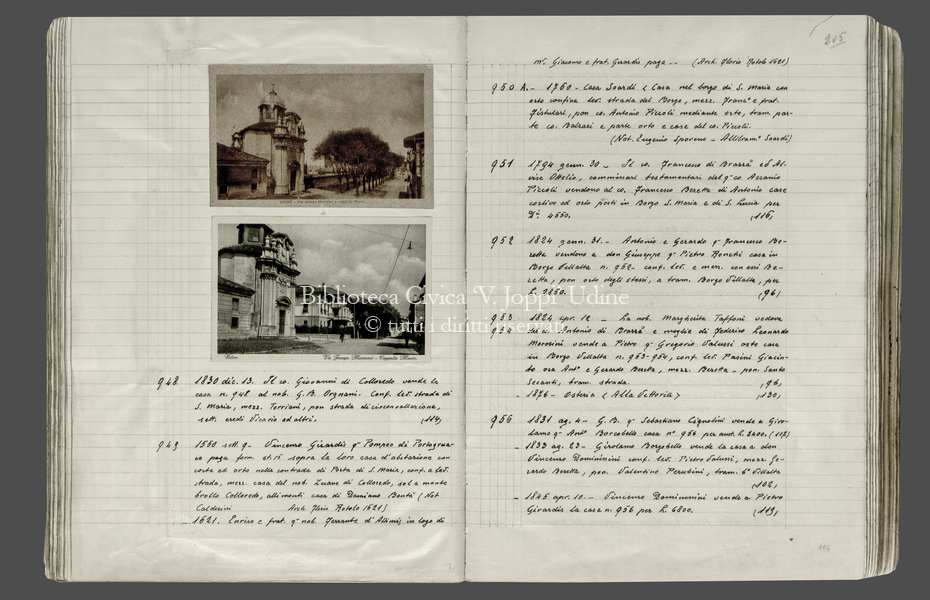 Udine
Via Jacopo Marinoni - Cappella Manin
948 1830 dic. 13. Il co. Giovanni di Colloredo vende la
casa n. 948 al nob. G.B. Orgnani. Conf. lev. strada di
S. Maria, mezz. Torriani, pon. strada di circonvallazione,
sett. eredi Vicario ed altri. (114)
949 1550 sett. 9 - Vincenzo Girardis q. Pompeo di Portogrua-
ro paga form. st. 15 sopra la loro casa d'abitazione con
corte ed orto nella contrada di Porta di S. Maria, conf. a lev.
strada, mezz. casa del nob. Zuane di Colloredo, sol a monte
brollo Colloredo, alli monti casa di Damiano Bontà (Not
Calderini Arch. Florio Rotolo 1621)
- 1621. Enrico e frat. q. nob. Ferrante d'Attimis in logo di
205
mr. Giacomo e frat. Girardis paga -- (Arch. Florio Rotolo 1621)
950 A. - 1760 - Casa Soardi e Casa nel borgo di S. Maria con
orto confina lev. strada del Borgo, mezz. Franc.o e frat.
Fistulari, pon. co. Antonio Piccoli mediante orto, tram. par-
te co. Belzari e parte orto e case del co. Piccoli.
(Not. Eugenio Sporeno - Alibram.o Soardi)
951 1794 genn. 30 - Il co. Francesco di Brazzà ed Al-
vise Ottelio, commissari testamentari del q. co Ascanio
Piccoli vendono al co. Francesco Beretta di Antonio case
cortivo ed orto posti in Borgo S. Maria e di S. Lucia per
D.ti 4550. (116)
952 1824 genn. 31. - Antonio e Gerardo q. Francesco Be-
retta vendono a don Giuseppe q. Pietro Ronchi casa in
Borgo Villalta n. 952 - conf. lev. e mezz. con essi Be-
retta, pon. orto degli stessi, a tram. Borgo Villalta, per
L. 3850. (96)
953 1824 apr. 12 - La nob. Margherita Taffoni vedova
954 del co. Antonio di Brazzà e moglie di Federico Leonardo
Morosini vende a Pietro q. Gregorio Valussi orto case
in Borgo Villalta n. 953-954, conf. lev. Pasini Giacin-
to ora Ant.o e Gerardo Beretta, mezz. Beretta - pon. Santo
Secanti, tram. strada. (96)
- 1876 - Osteria (Alla Vittoria) (130)
956 - 1831 ag. 4 - G.B. q. Sebastiano Cignolini vende a Giro-
lamo q. Ant.o Borgobello casa n.o 956 per aust. L. 2400. (117)
- 1833 ag. 23 - Girolamo Borgobello vende la casa a don
Vincenzo Dominissini conf. lev. Pietro Valussi, mezz. Ge-
rardo Beretta, pon. Valentino Perubini, tram. b.o Villalta
(102)
- 1845 apr. 10. - Vincenzo Dominissini vende a Pietro
Girardis la casa n. 956 per L. 6800. (119)
Biblioteca Civica 'V. Joppi' Udine
© tutti i diritti riservati